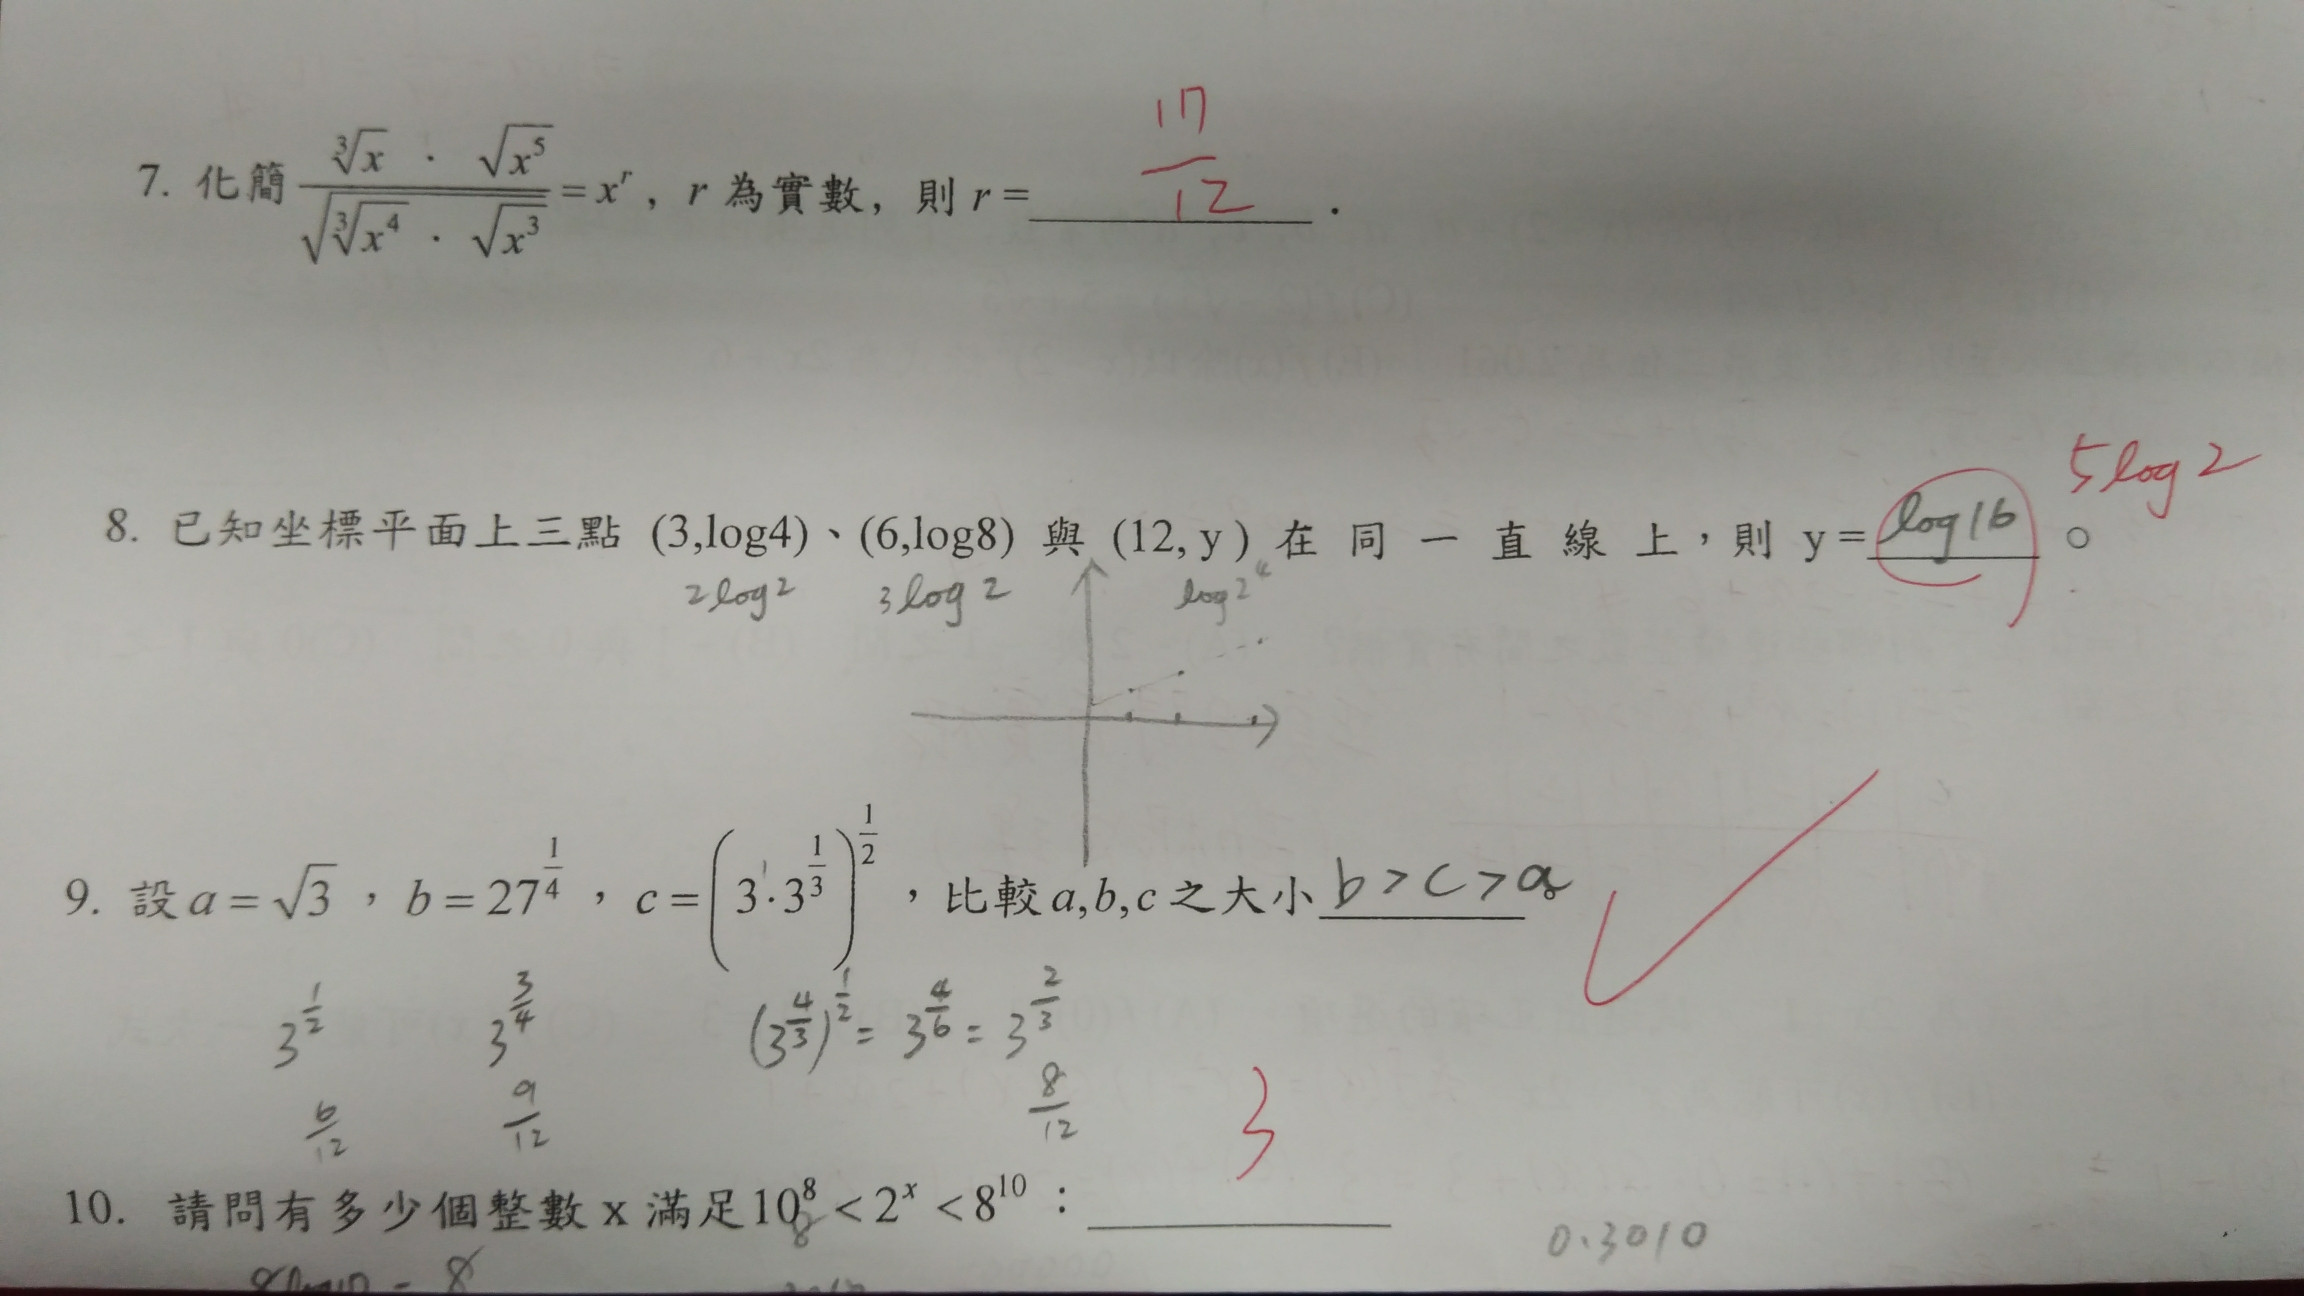 7. 化簡 \frac{\sqrt[3]{x} · \sqrt{x^5}}{\sqrt{\sqrt[3]{x^4} · \sqrt{x^3}}} = x^r，r 為實數，則 r = \frac{17}{12} .
8. 已知坐標平面上三點 (3,log4)、(6,log8) 與 (12, y ) 在 同 一 直 線 上，則 y = log16 。 5log2
2log2 3log2 log2^4
9. 設 a = √3 ， b = 27^{\frac{1}{4}} ， c = (3^1·3^{\frac{1}{3}})^{\frac{1}{2}} ，比較 a,b,c 之大小 b > c > a
3^{\frac{1}{2}} 3^{\frac{3}{4}} (3^{\frac{4}{3}})^{\frac{1}{2}} = 3^{\frac{4}{6}} = 3^{\frac{2}{3}}
\frac{6}{12} \frac{9}{12} \frac{8}{12}
10. 請問有多少個整數 x 滿足 10^8 < 2^x < 8^{10} ： 3
8
0.3010
8log10 = 8